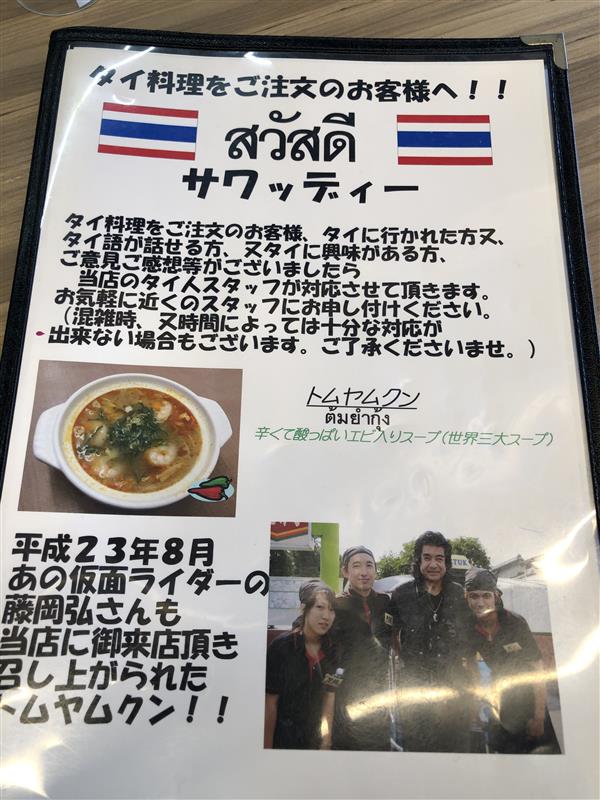 タイ料理をご注文のお客様へ！！
สวัสดี
サワッディー
タイ料理をご注文のお客様、タイに行かれた方又、
タイ語が話せる方、又タイに興味がある方、
ご意見ご感想等がございましたら
当店のタイ人スタッフが対応させて頂きます。
お気軽に近くのスタッフにお申し付けください。
（混雑時、又時間によっては十分な対応が
出来ない場合もございます。ご了承くださいませ。）
トムヤムクン
ต้มยำกุ้ง
辛くて酸っぱいエビ入りスープ（世界三大スープ）
平成２３年８月
あの仮面ライダーの
藤岡弘さんも
当店に御来店頂き
召し上がられた
トムヤムクン！！
TUK